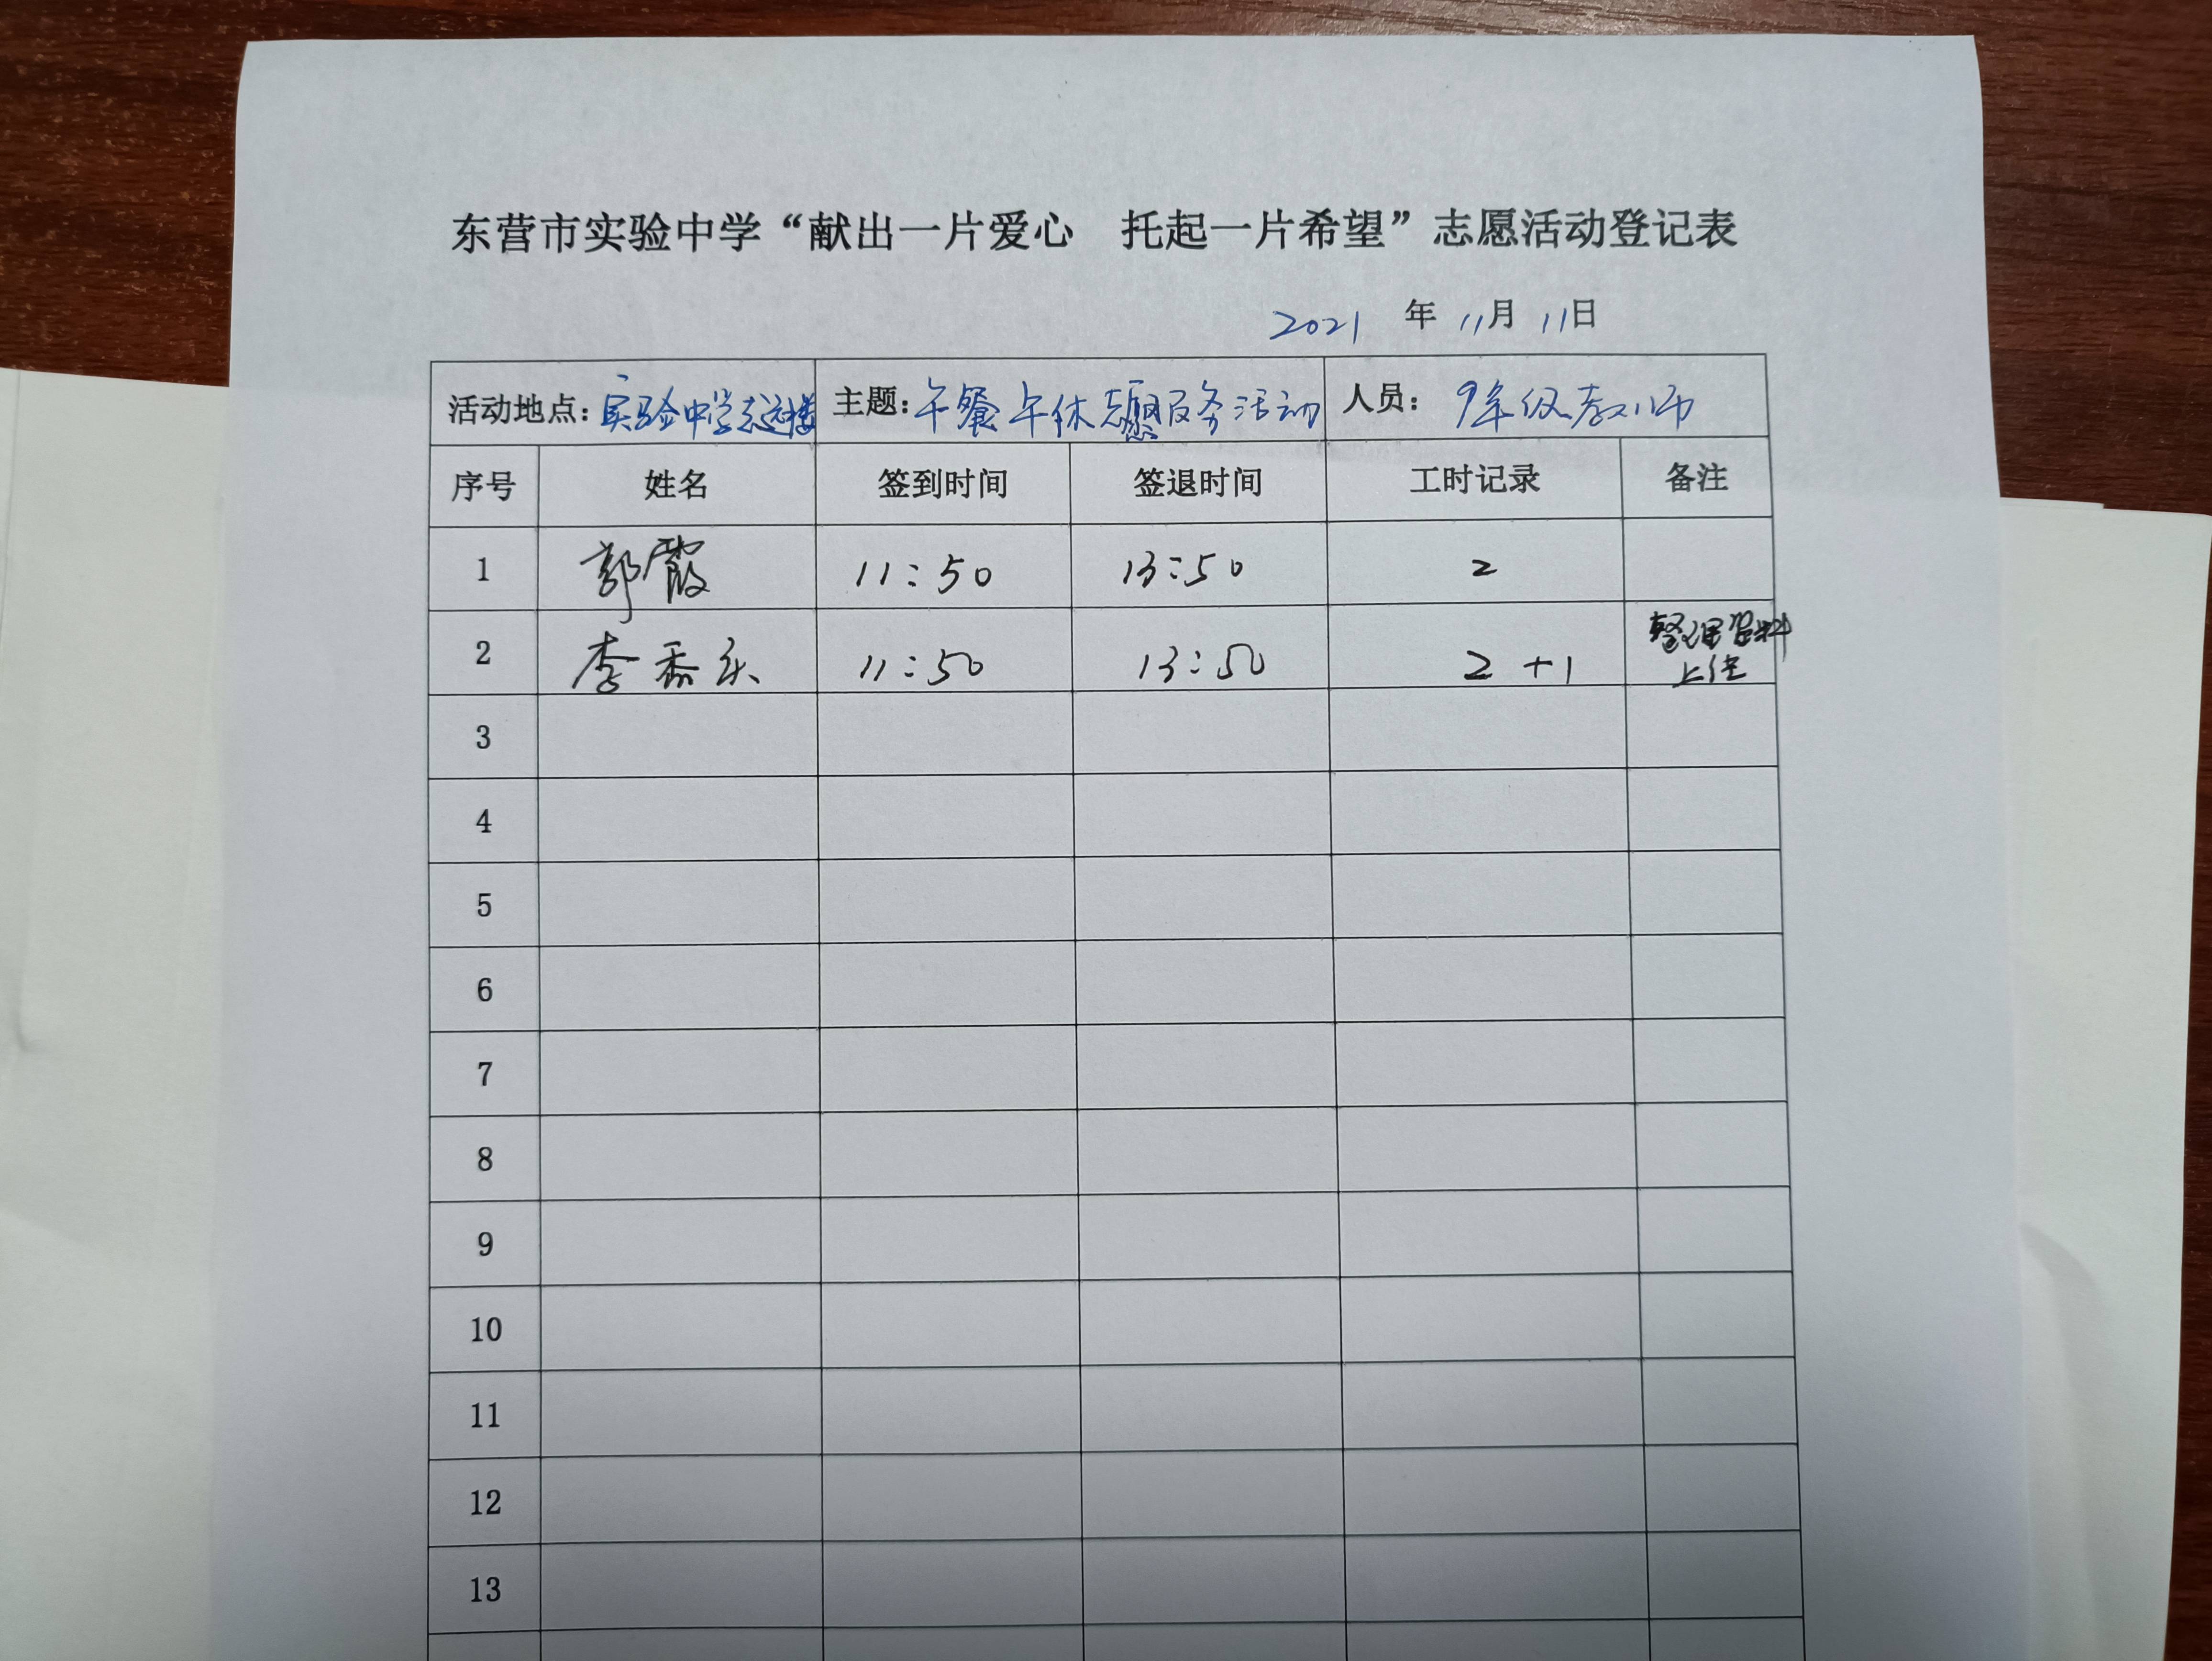 东营市实验中学“献出一片爱心 托起一片希望”志愿活动登记表
2021 年 11月 11日
活动地点：实验中学志远楼 主题：午餐午休志愿服务活动 人员： 9年级教师
序号 姓名 签到时间 签退时间 工时记录 备注
1 郭霞 11:50 13:50 2
2 李 11:50 13:50 2 +1 整理资料
上传
3
4
5
6
7
8
9
10
11
12
13